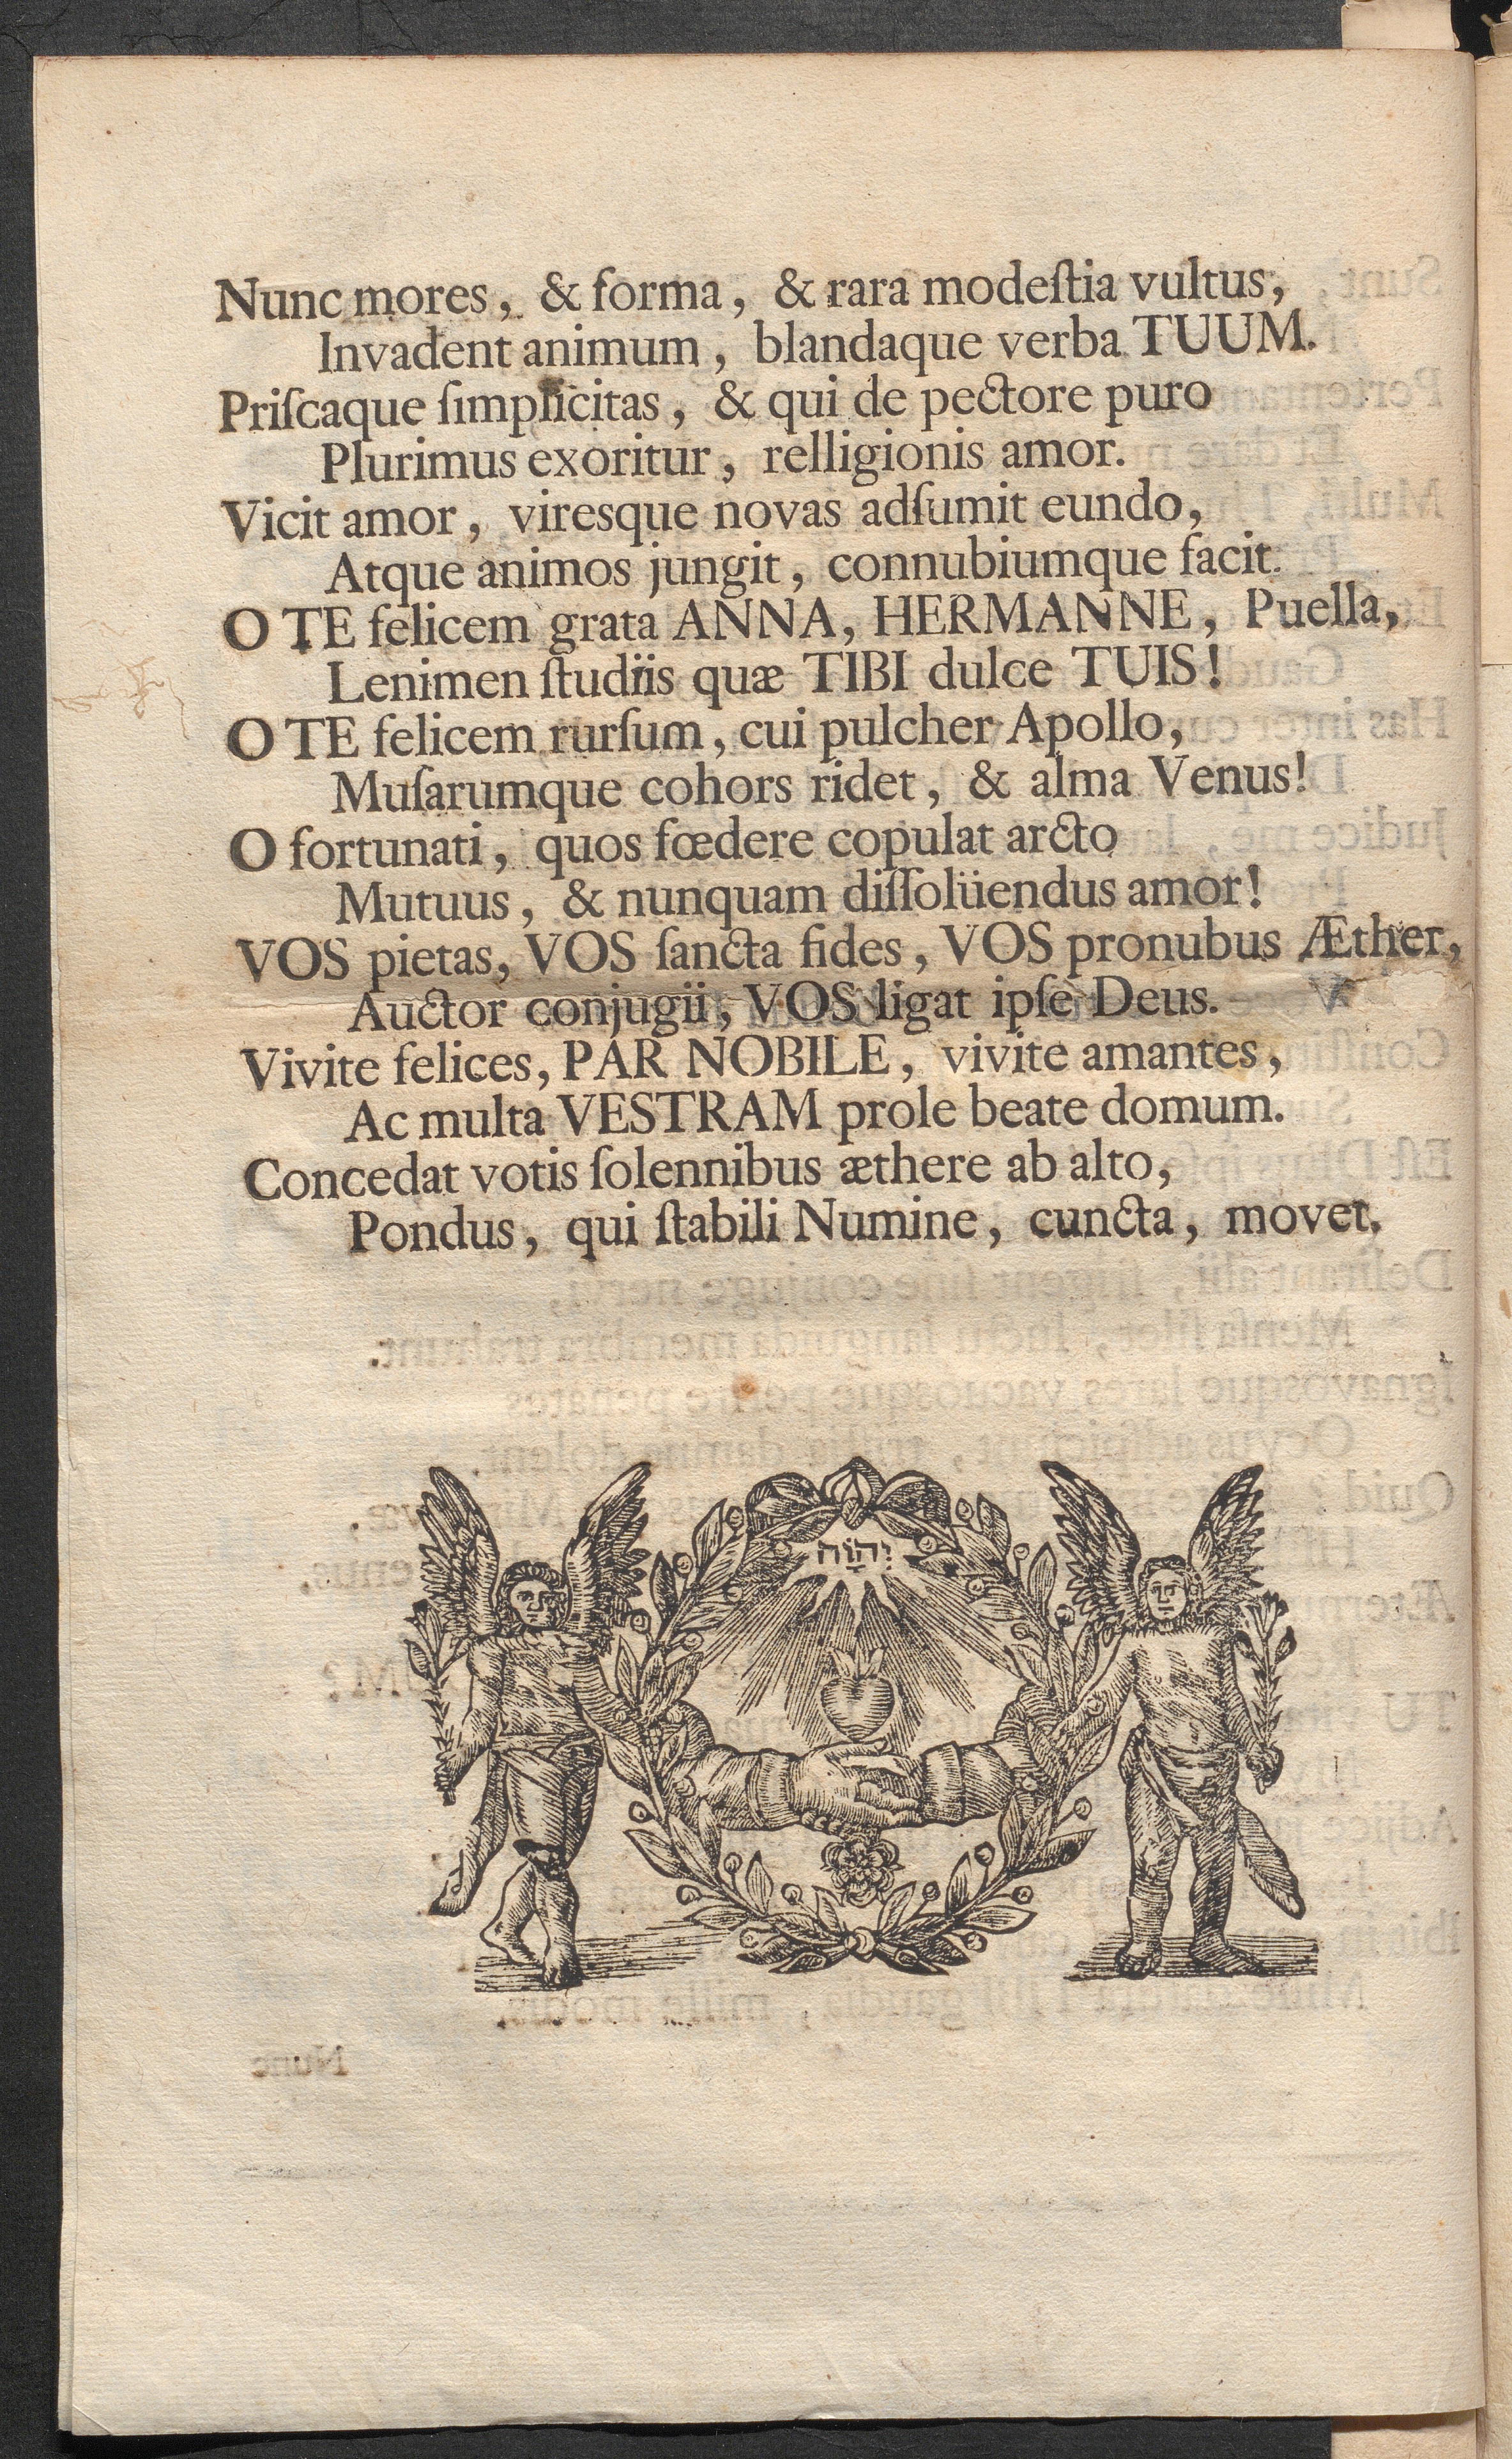 Nunc mores, & forma, & rara modeſtia vultus,
Invadent animum, blandaque verba TUUM.
Priſcaque ſimplicitas, & qui de pectore puro
Plurimus exoritur, relligionis amor.
Vicit amor, viresque novas adſumit eundo,
Atque animos jungit, connubiumque facit.
O TE felicem grata ANNA, HERMANNE, Puella,
Lenimen ſtudiis quæ TIBI dulce TUIS!
O TE felicem rurſum, cui pulcher Apollo,
Muſarumque cohors ridet, & alma Venus!
O fortunati, quos fœdere copulat arcto
Mutuus, & nunquam diſſolüendus amor!
VOS pietas, VOS ſancta fides, VOS pronubus Æther,
Auctor conjugii, VOS ligat ipſe Deus.
Vivite felices, PAR NOBILE, vivite amantes,
Ac multa VESTRAM prole beate domum.
Concedat votis ſolennibus æthere ab alto,
Pondus, qui ſtabili Numine, cuncta, movet.
יהוה